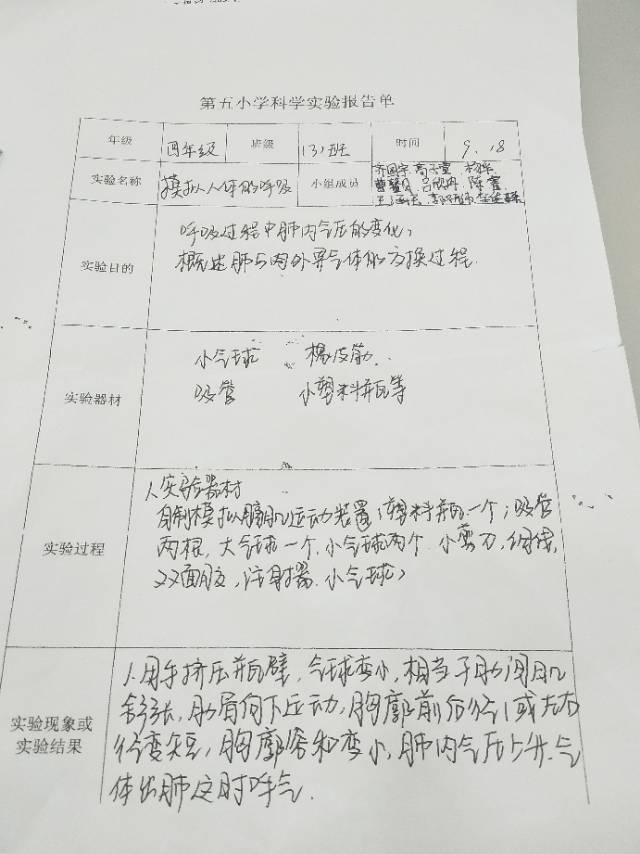 第五小学科学实验报告单
年级 四年级 班级 (3)班 时间 9.18
实验名称 模拟人体的呼吸 小组成员
陈
实验目的
呼吸过程中肺内气压的变化,
概述肺与外界气体的交换过程.
实验器材
小气球 橡皮筋
吸管 小塑料瓶等
实验过程
1.实验器材
自制模拟膈肌运动装置(塑料瓶一个;吸管
两根,大气球一个.小气球两个.小剪刀,细线,
双面胶,注射器.小气球)
实验现象或
实验结果
1.用手挤压瓶壁,气球变小,相当于肋间肌
舒张,肋骨向下运动,胸廓前后径或左右
径变短,胸廓容积变小,肺内气压上升.气
体出肺这时呼气.